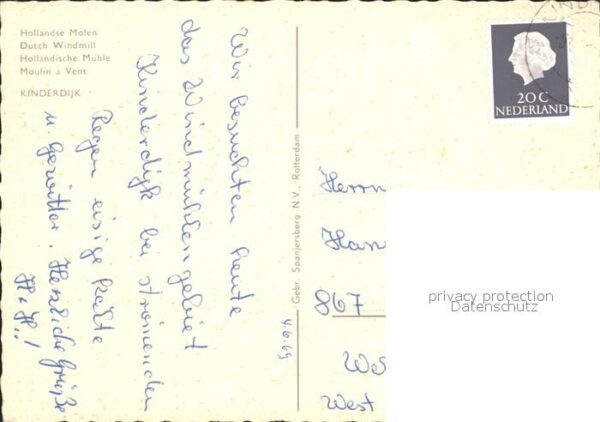 Hollandse Molen
Dutch Windmill
Holländische Mühle
Moulin à Vent
KINDERDIJK
Wir besuchten heute
das Windmühlengebiet
Kinderdijk bei strömenden
Regen eisige Kälte
u. Gewitter. Herzliche Grüße
H. H.!
4.6.69
Gebr. Spanjersberg N.V., Rotterdam
20 C
NEDERLAND
Herrn
Han
867
We
West
privacy protection
Datenschutz